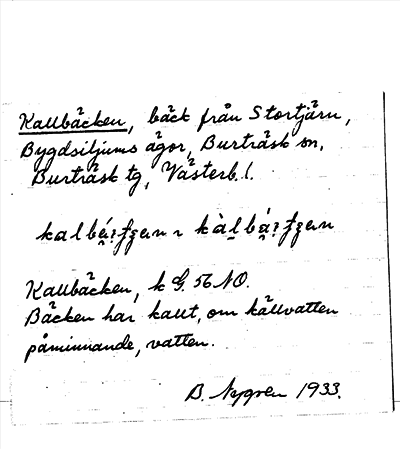 Kallbäcken, bäck från Stortjärn,
Bygdsiljums ägor, Burträsk sn,
Burträsk tg, Västerb. l.
Kallbäcken, k G. 56 NO.
Bäcken har kallt, om källvatten
påminnande, vatten.
B. Nygren 1933.